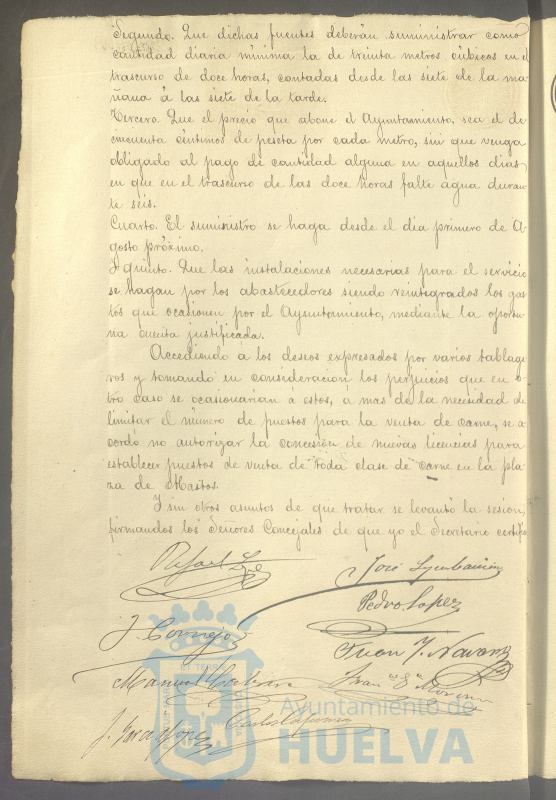 Segundo. Que dichas fuentes deberán suministrar como
cantidad diaria mínima la de treinta metros cúbicos en el
trascurso de doce horas, contadas desde las siete de la ma-
ñana á las siete de la tarde.
Tercero. Que el precio que abone el Ayuntamiento, sea el de
cincuenta céntimos de peseta por cada metro, sin que venga
obligado al pago de cantidad alguna en aquellos dias
en que en el trascurso de las doce horas falte agua duran-
te seis.
Cuarto. El suministro se haga desde el dia primero de A-
gosto próximo.
Y quinto. Que las instalaciones necesarias para el servicio
se hagan por los abastecedores siendo reintegrados los gas-
tos que ocasionen por el Ayuntamiento, mediante la oportu-
na cuenta justificada.
Accediendo a los deseos expresados por varios tablage-
ros y tomando en consideracion los perjuicios que en o-
tro caso se ocasionarian á estos, a mas de la necesidad de
limitar el número de puestos para la venta de carne, se a-
cordó no autorizar la concesión de nuevas licencias para
establecer puestos de venta de toda clase de carne en la pla-
za de Abastos.
Y sin otros asuntos de que tratar se levantó la sesion,
firmandos los Señores Concejales de que yo el Secretario certifico
Rafael
José
Pedro Lopez
J. Cornejo
Juan J. Navarro
Manuel
Juan
Moreno
J. Garcia Lopez
Carlos
Ayuntamiento de
HUELVA